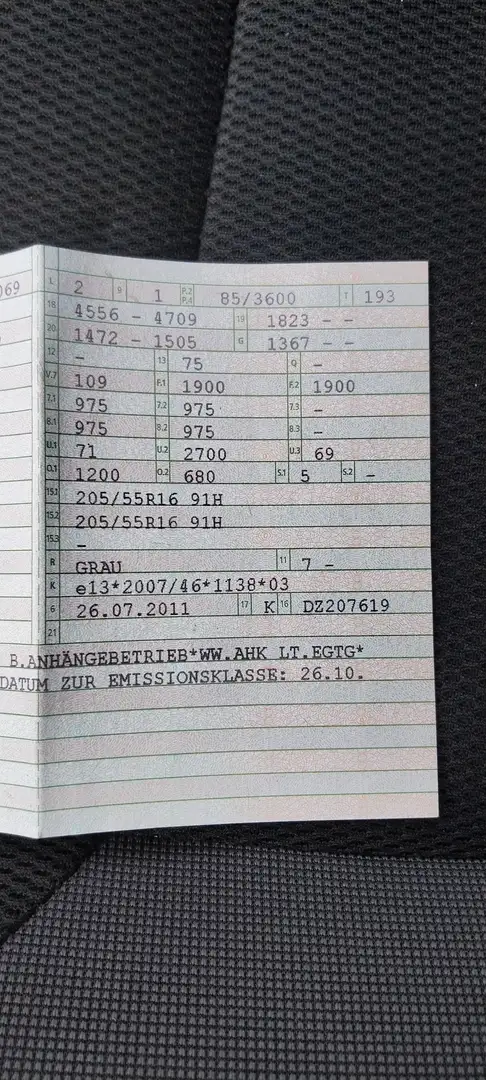 069
L 2 9 1 P.2 P.4 85/3600 T 193
18 4556 - 4709 19 1823 - -
20 1472 - 1505 G 1367 - -
12 - 13 75 Q -
V.7 109 F.1 1900 F.2 1900
7.1 975 7.2 975 7.3 -
8.1 975 8.2 975 8.3 -
U.1 71 U.2 2700 U.3 69
O.1 1200 O.2 680 S.1 5 S.2 -
15.1 205/55R16 91H
15.2 205/55R16 91H
15.3 -
R GRAU 11 7 -
K e13*2007/46*1138*03
6 26.07.2011 17 K 16 DZ207619
21
B.ANHÄNGEBETRIEB*WW.AHK LT.EGTG*
DATUM ZUR EMISSIONSKLASSE: 26.10.